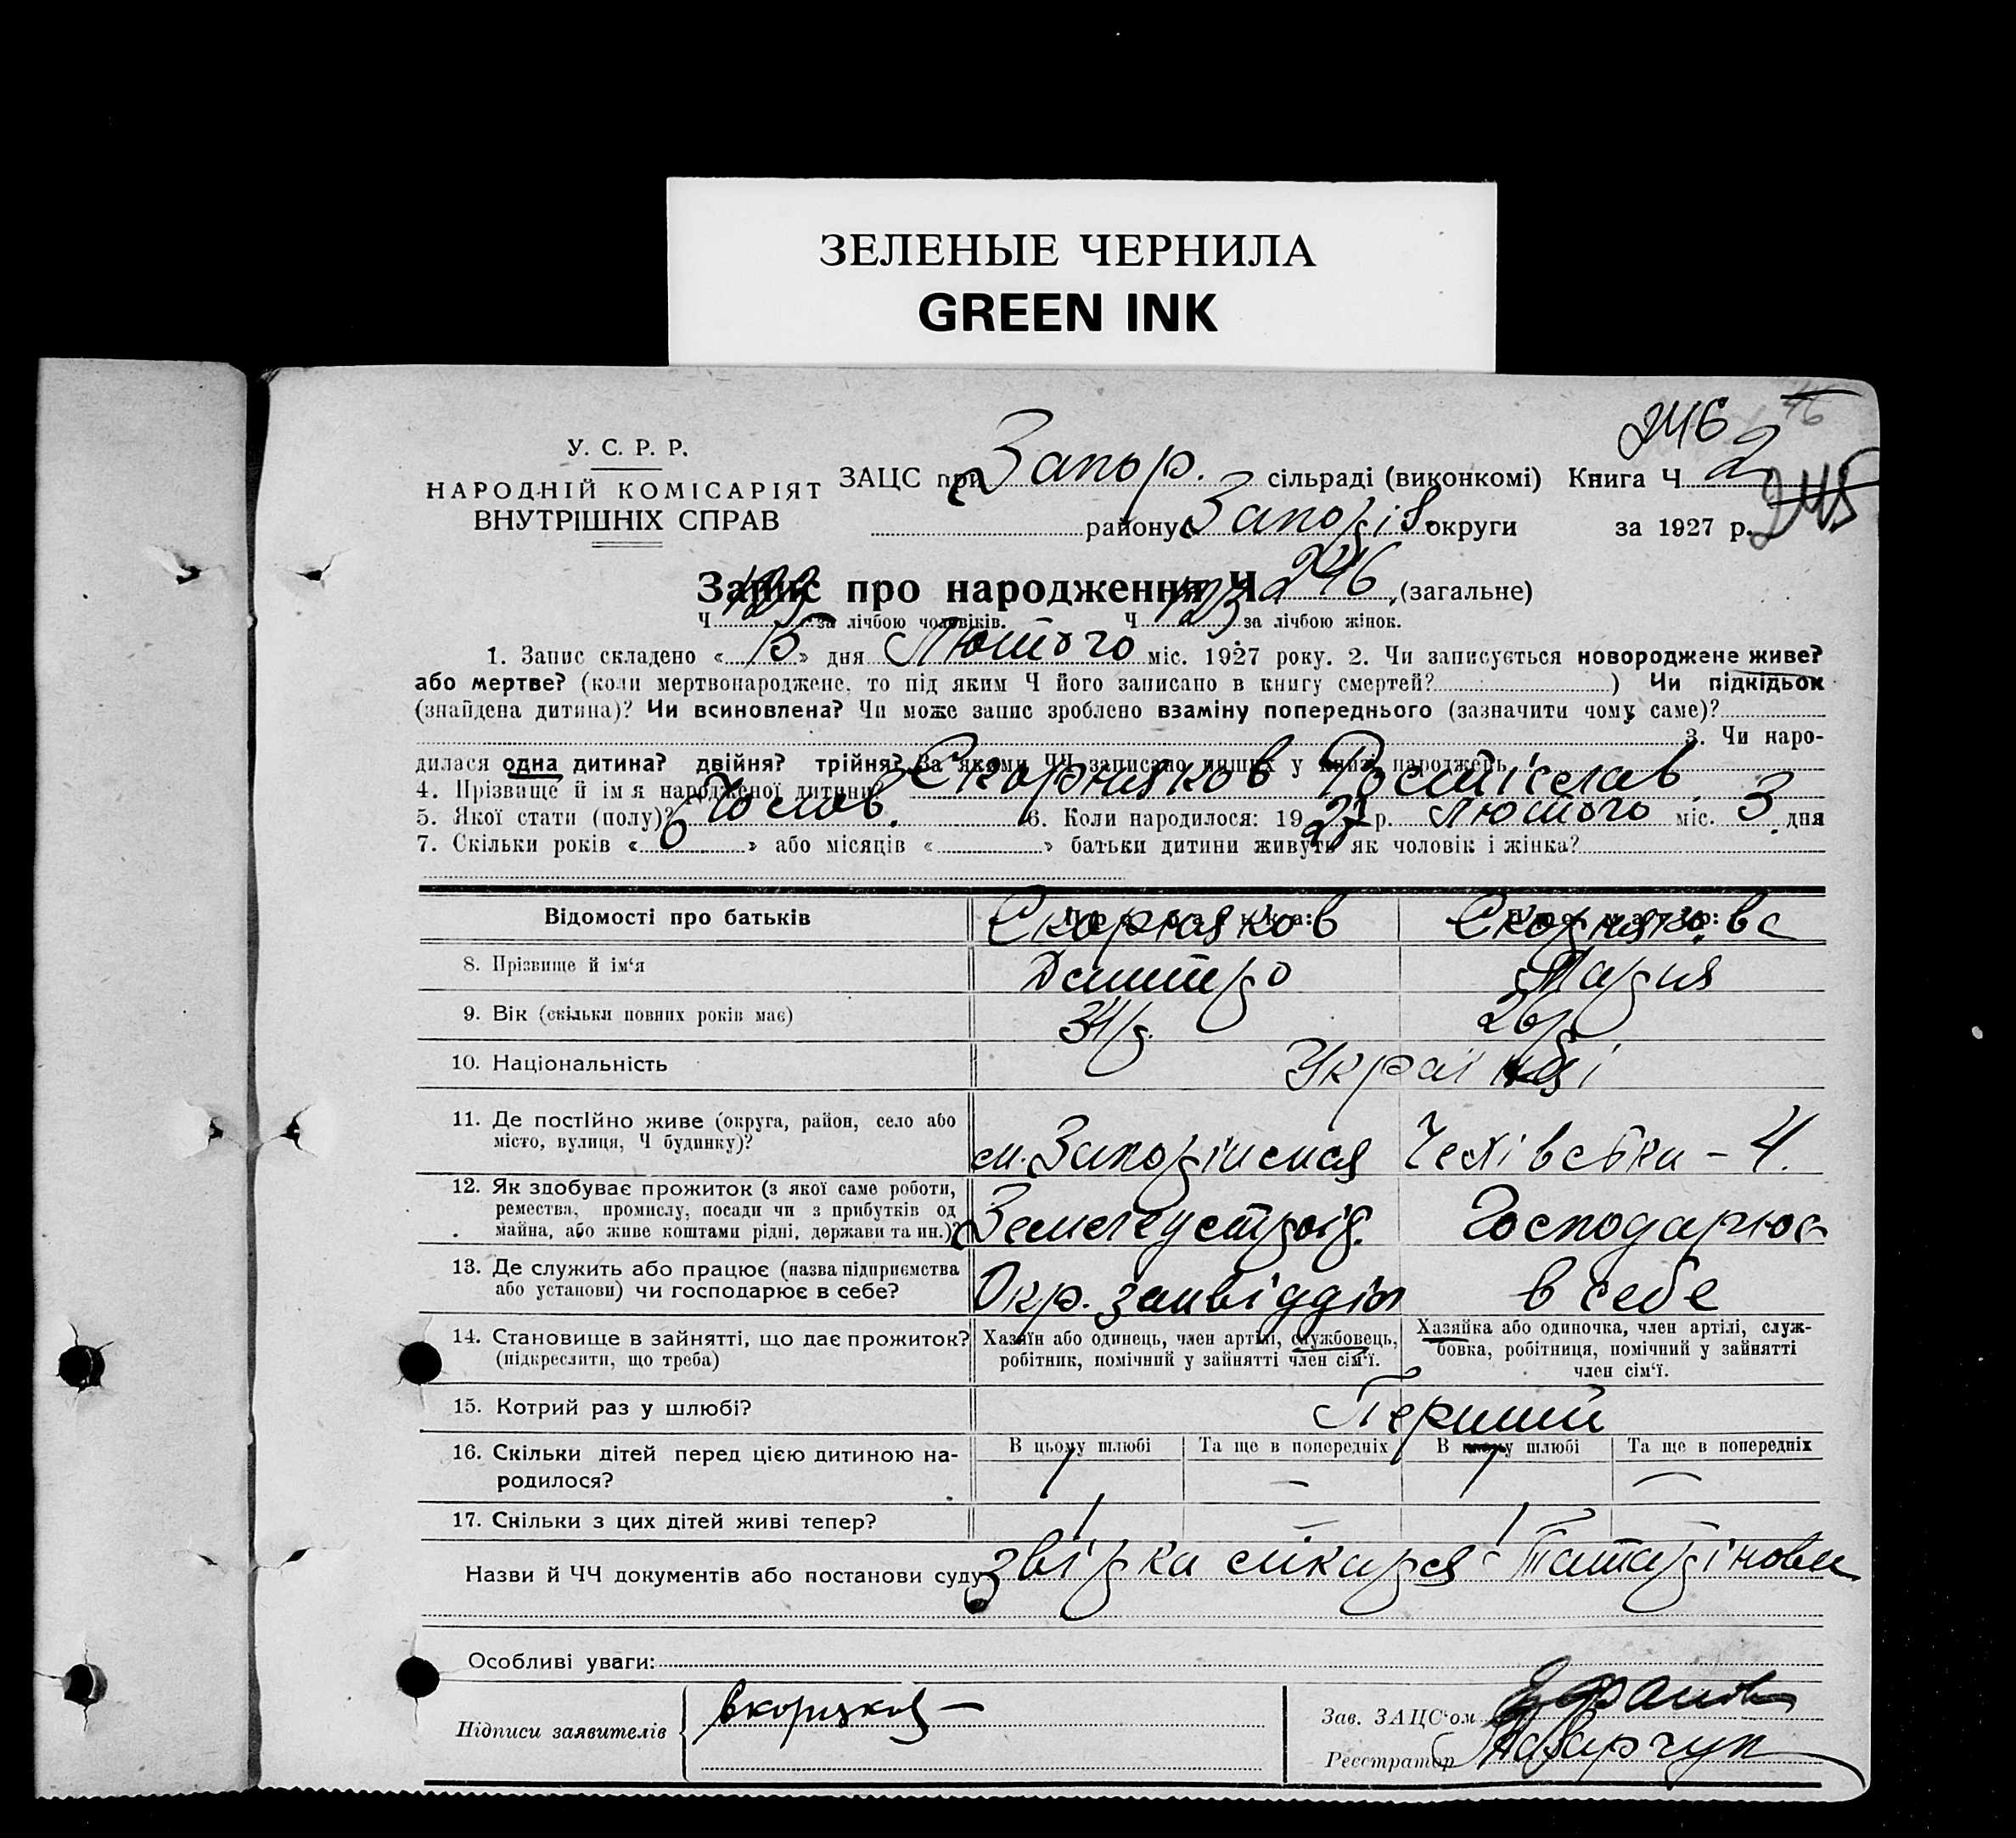 ЗЕЛЕНЫЕ ЧЕРНИЛА
GREEN INK
246
У. С. Р. Р.
НАРОДНІЙ КОМІСАРІЯТ
ВНУТРІШНІХ СПРАВ
ЗАЦС при Запор. сільраді (виконкомі) Книга Ч 2
району Запоріз. округи за 1927 р. 245
Запис про народження Ч 246 (загальне)
Ч 123 за лічбою чоловіків. Ч 123 за лічбою жінок.
1. Запис складено « 15 » дня Лютого міс. 1927 року. 2. Чи записується новороджене живе?
або мертве? (коли мертвонароджене, то під яким Ч його записано в книгу смертей? ) Чи підкідьок
(знайдена дитина)? Чи всиновлена? Чи може запис зроблено взаміну попереднього (зазначити чому саме)?
3. Чи наро-
дилася одна дитина? двійня? трійня? За якими ЧЧ записано инших у книзі народжень
4. Прізвище й ім я народженої дитини? Скорняков Ростіслав
5. Якої стати (полу)? Чолов. 6. Коли народилося: 1927 р. лютого міс. 3 дня
7. Скільки років « 6 » або місяців « » батьки дитини живуть як чоловік і жінка?
Відомості про батьків Про батька: Про матір:
Скорняков Скорнякова
8. Прізвище й ім‘я Дмитро Мария
9. Вік (скільки повних років має) 34 р. 26 р.
10. Національність Українці
11. Де постійно живе (округа, район, село або
місто, вулиця, Ч будинку)? м. Запоріжжя 4.
12. Як здобуває прожиток (з якої саме роботи,
ремества, промислу, посади чи з прибутків од
майна, або живе коштами рідні, держави та ин.)? Землеустроїд. Господарює
13. Де служить або працює (назва підприємства
або установи) чи господарює в себе? Окр. земвідділ в себе
14. Становище в зайнятті, що дає прожиток?
(підкреслити, що треба)
Хазяїн або одинець, член артілі, службовець,
робітник, помічний у зайнятті член сім‘ї.
Хазяйка або одиночка, член артілі, служ-
бовка, робітниця, помічний у зайнятті
член сім‘ї.
15. Котрий раз у шлюбі? Перший
16. Скільки дітей перед цією дитиною на-
родилося?
В цьому шлюбі Та ще в попередніх В цьому шлюбі Та ще в попередніх
1 — 1 —
17. Скільки з цих дітей живі тепер? 1 — 1 —
Назви й ЧЧ документів або постанови суду лікаря
Особливі уваги:
Підписи заявителів
Зав. ЗАЦС‘ом
Реєстратор